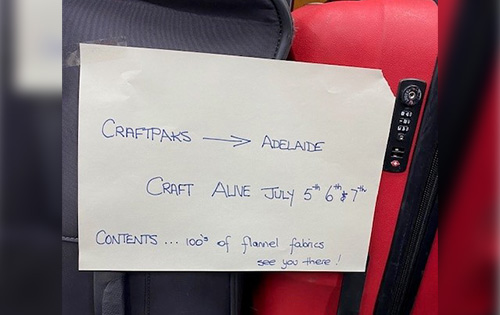 CRAFTPAKS → ADELAIDE
CRAFT ALIVE JULY 5th 6th & 7th
CONTENTS ... 100's of flannel fabrics
see you there!